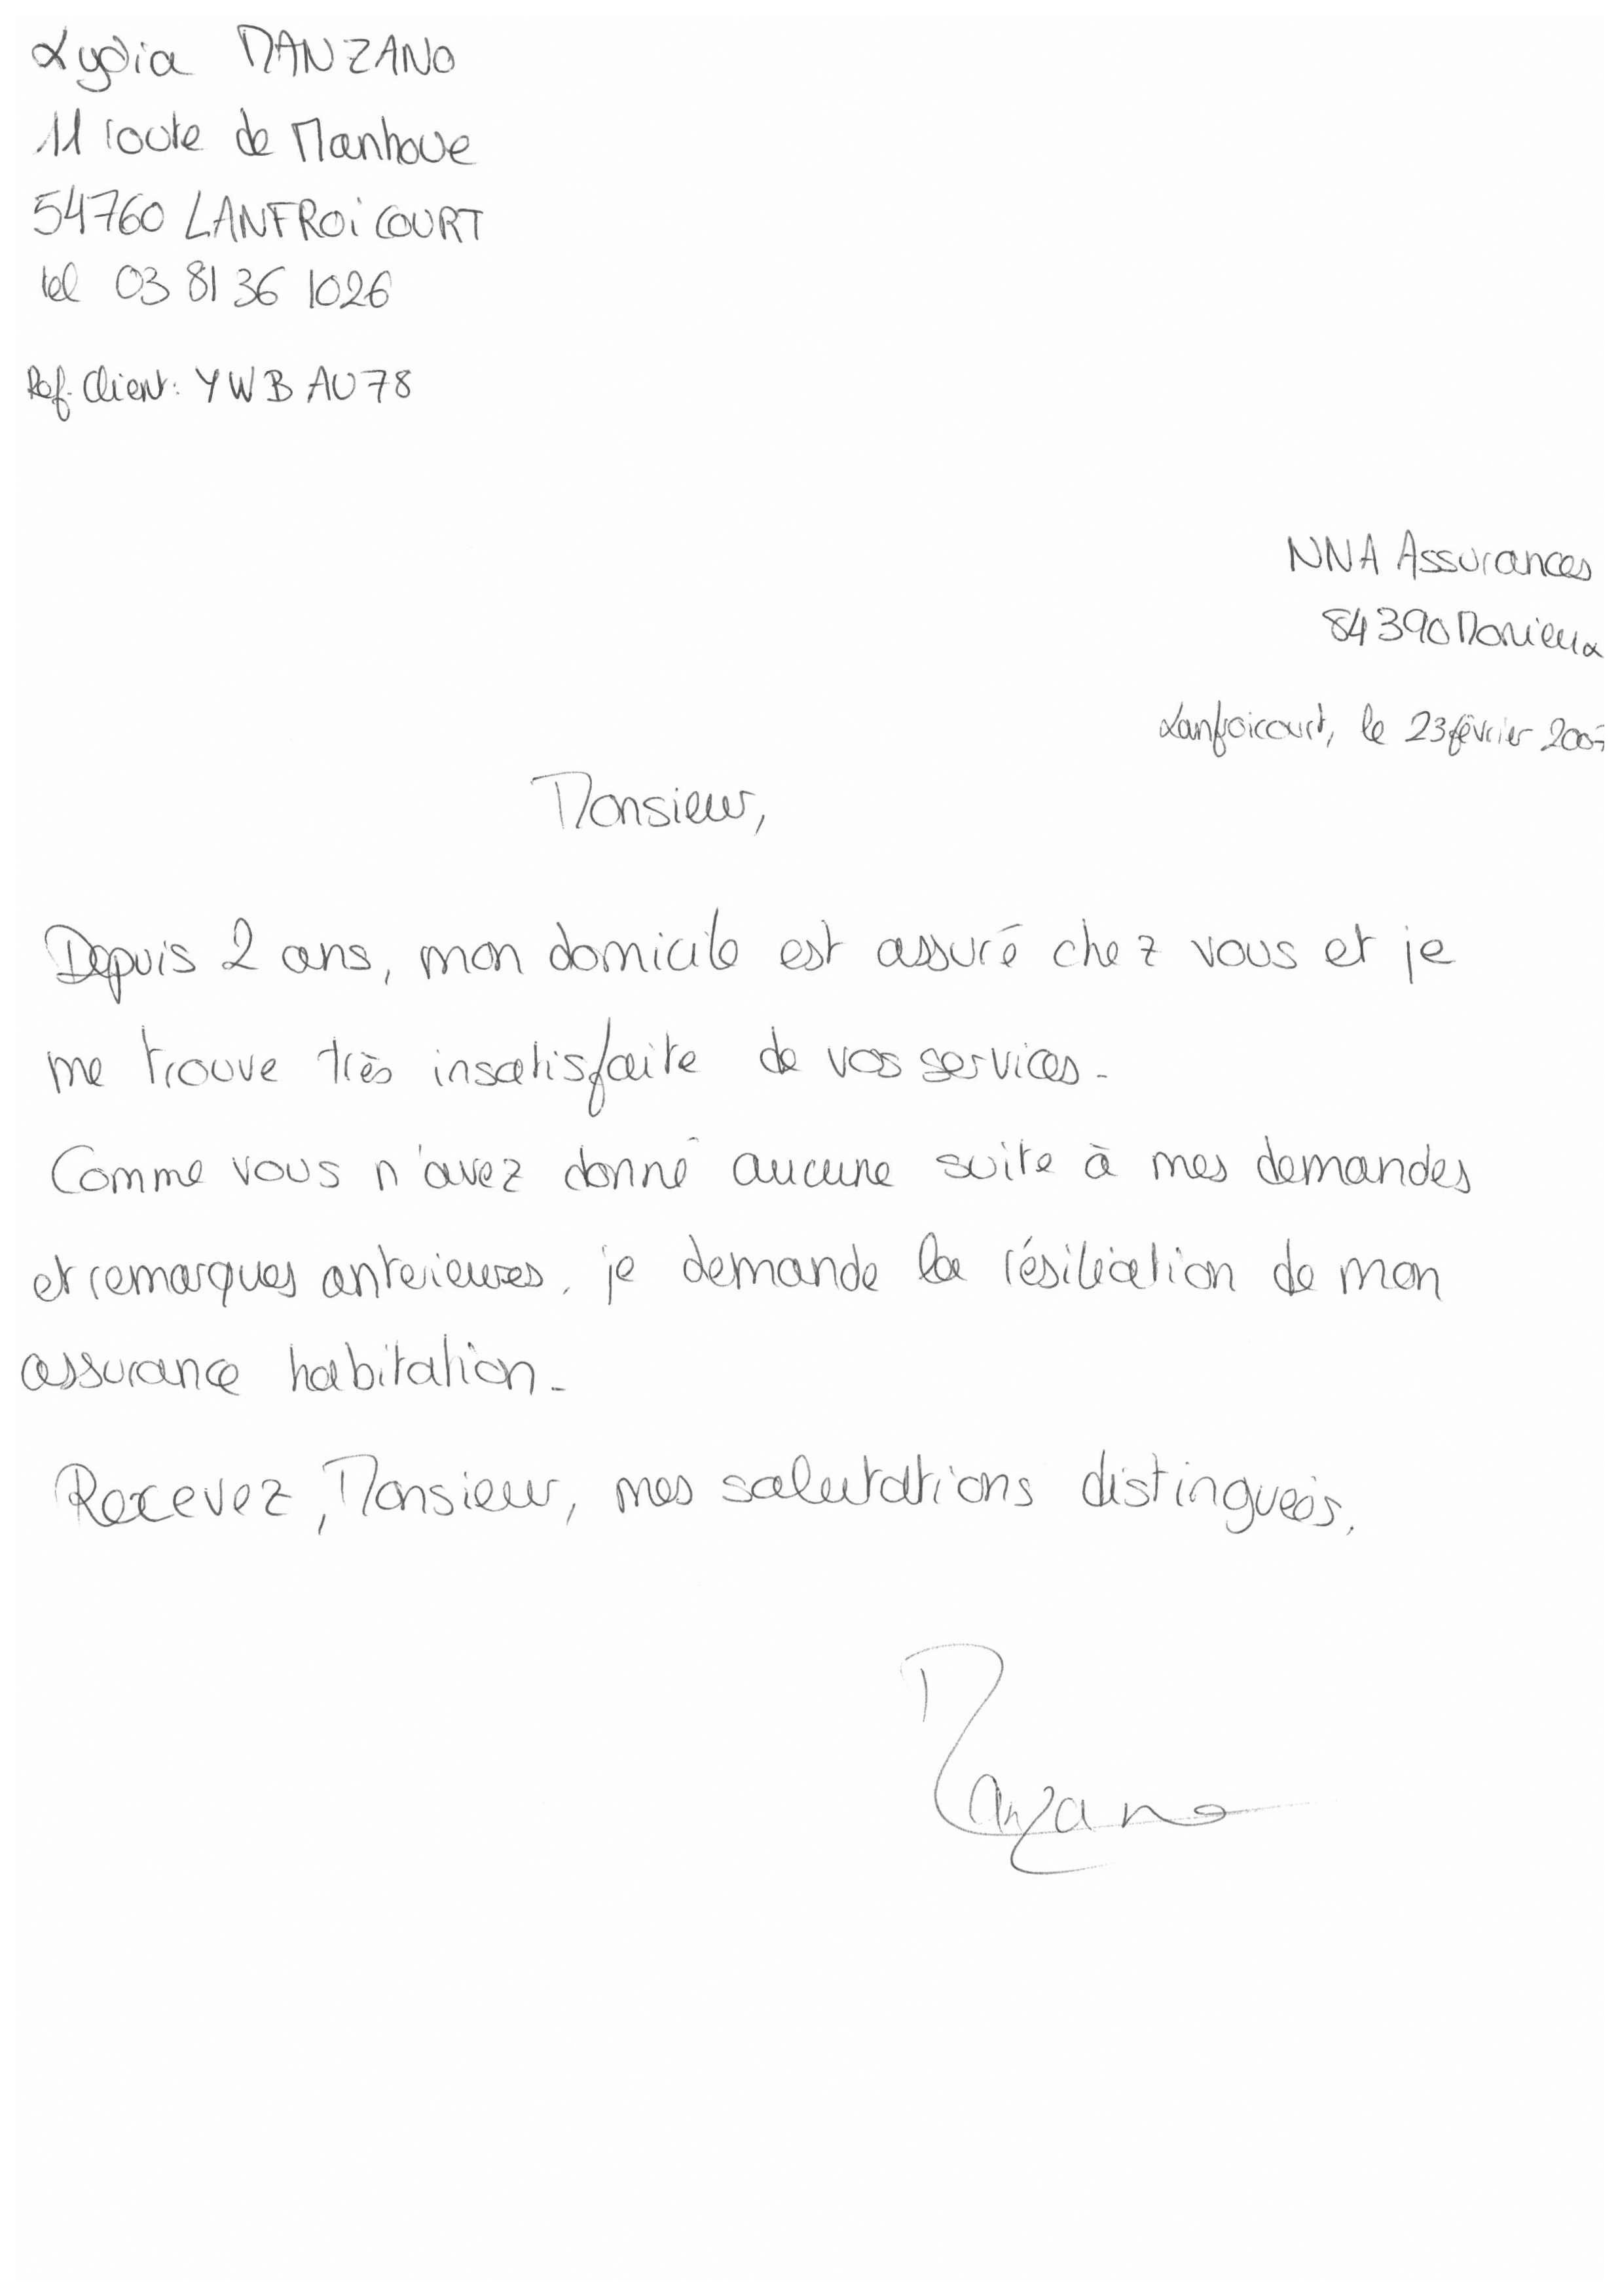 Lydia MANZANO
11 route de Manhoue
54760 LANFROiCOURT
tel 03 81 36 1026
Ref. Client: YWBAU78
NNA Assurances
84390 Monieux
Lanfroicourt, le 23 février
Monsieur,
Depuis 2 ans, mon domicile est assuré chez vous et je
me trouve très insatisfaite de vos services.
Comme vous n'avez donné aucune suite à mes demandes
et remarques anterieures, je demande la résiliation de mon
assurance habitation.
Recevez, Monsieur, mes salutations distinguées.
Manzano